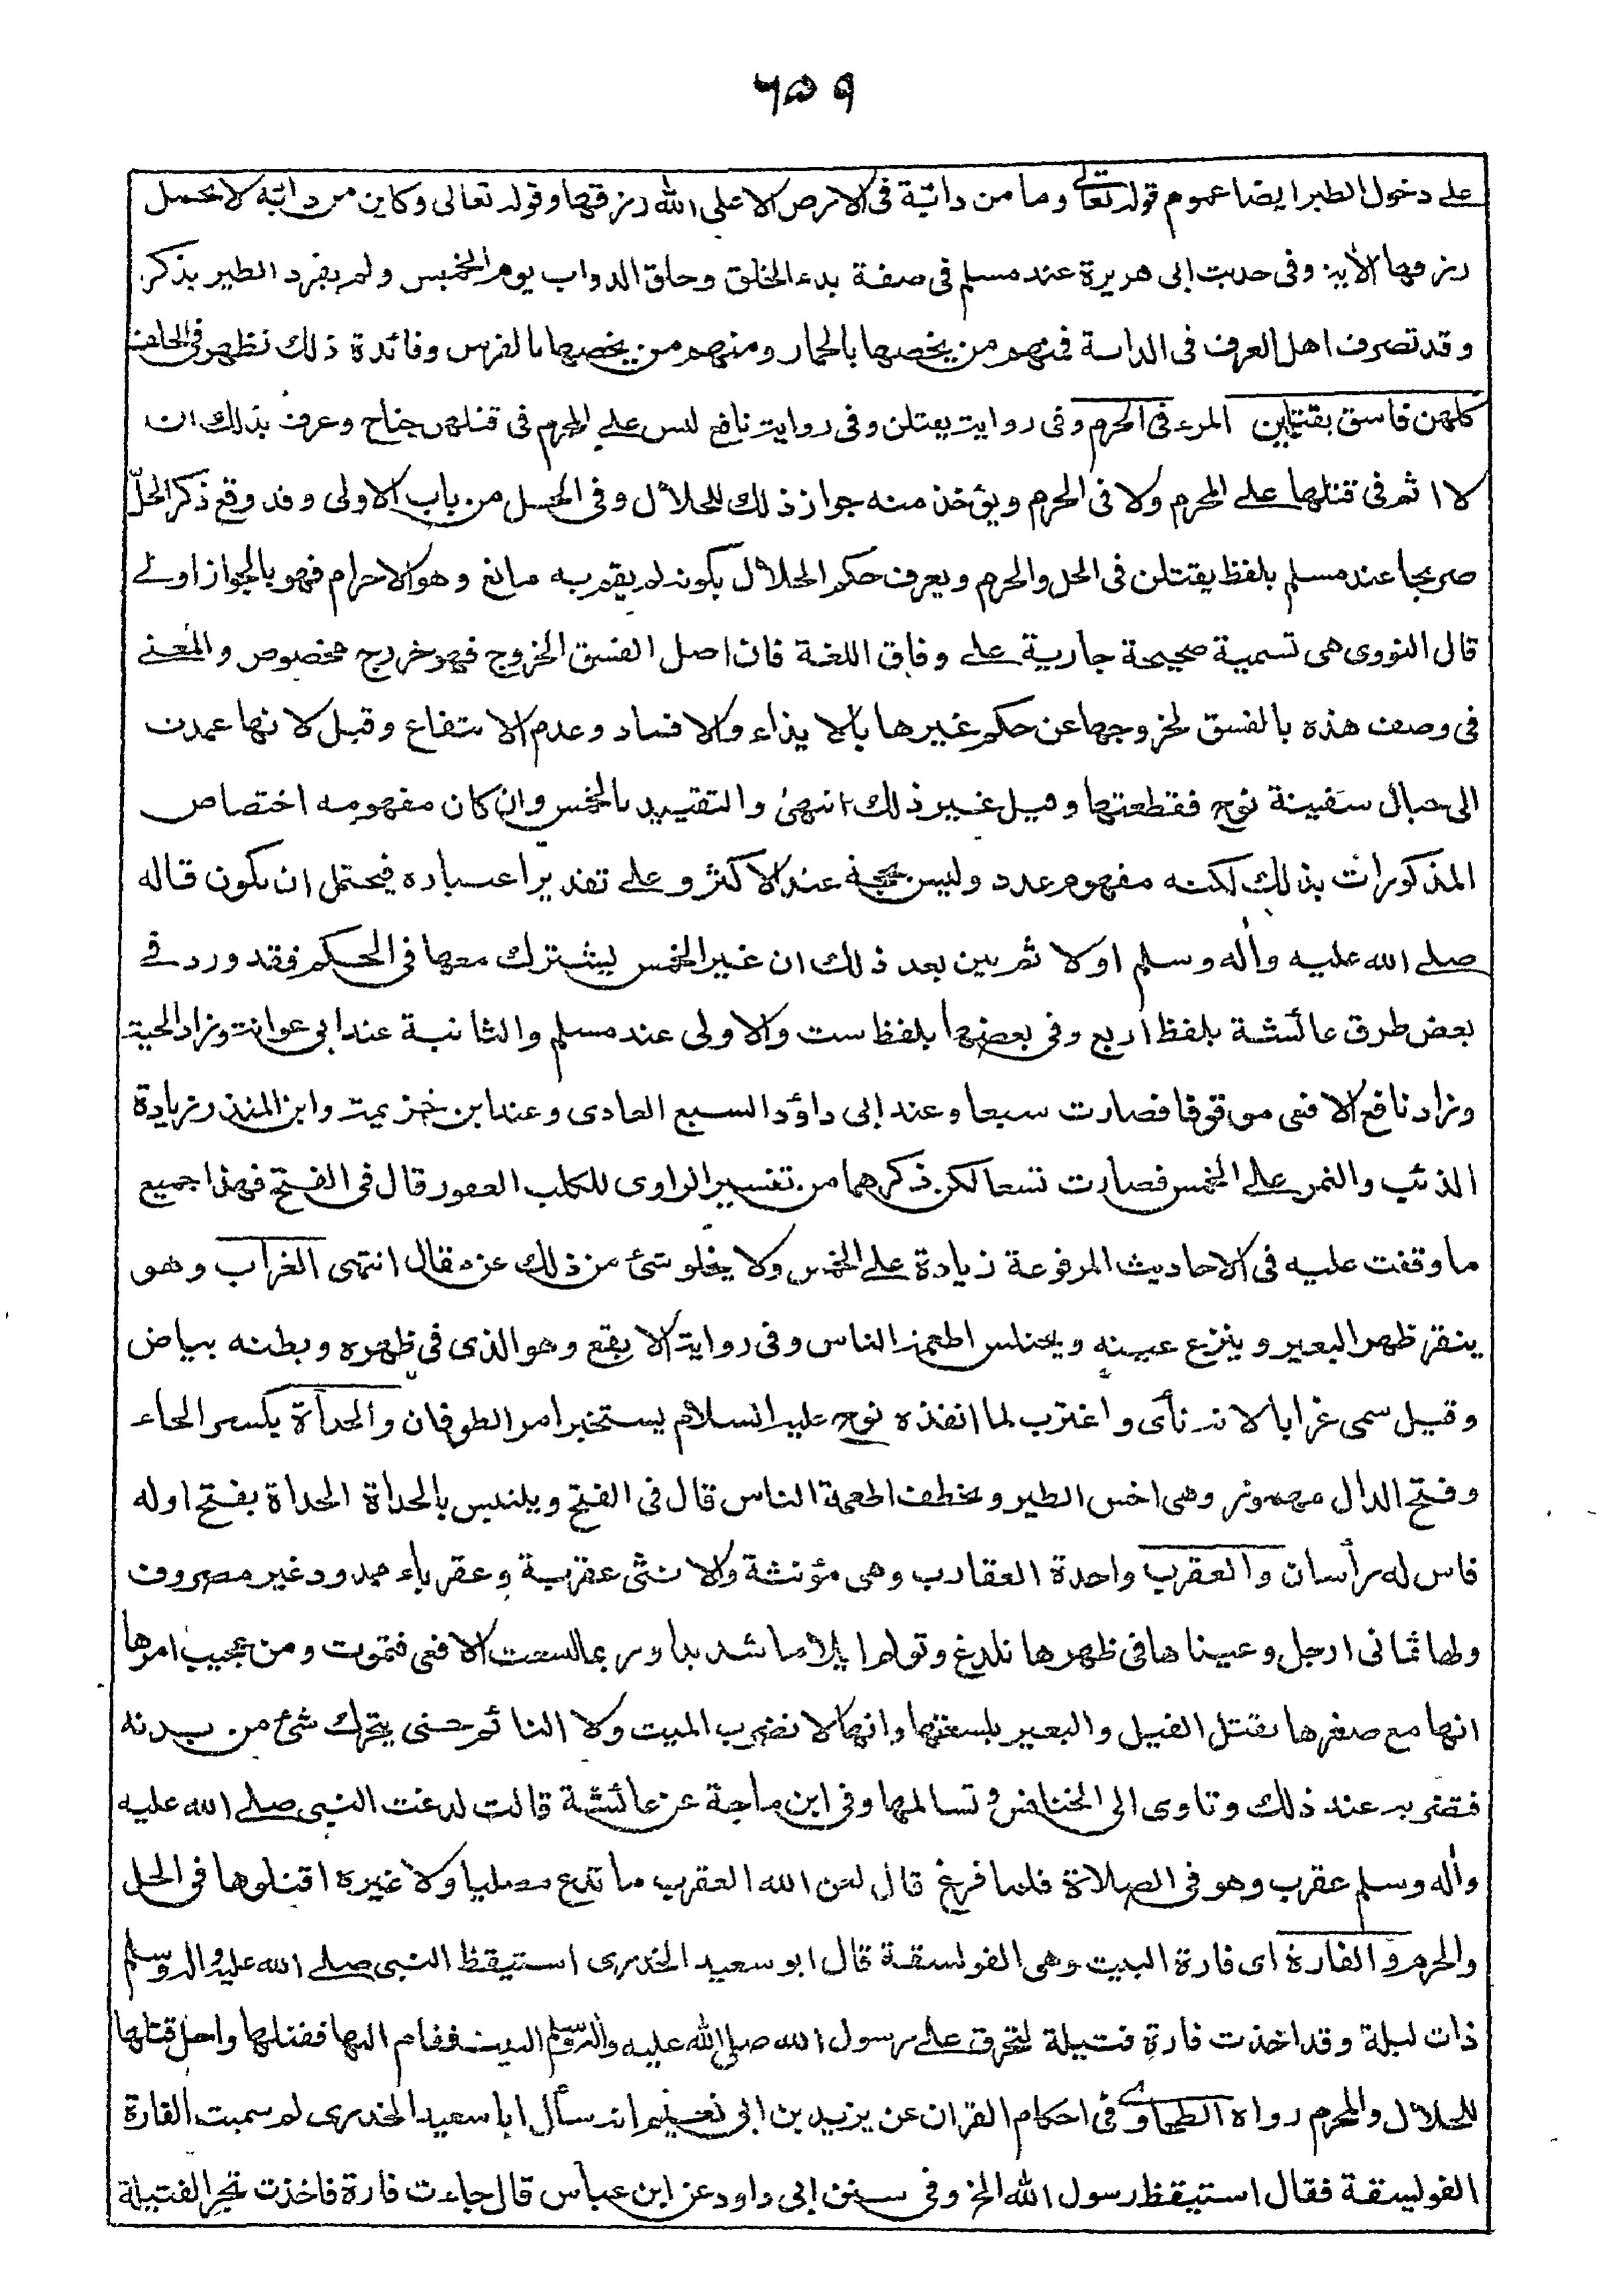 ٦٥٩
على دخول الطير ايضا عموم قوله تعالى وما من دابّة فى الارض الا على الله رزقها وقوله تعالى وكاين من دابّة لا تحمل
رزقها الاية وفى حديث ابى هريرة عند مسلم فى صفة بدء الخلق وخلق الدواب يوم الخميس ولم يفرد الطير بذكر
وقد تصرف اهل العرف فى الدابة فمنهم من يخصها بالحمار ومنهم من يخصها بالفرس وفائدة ذلك تظهر فى الحلف
كلهن فاسق بقتلهن المرء فى الحرم وفى رواية يقتلن وفى رواية نافع ليس على المحرم فى قتلهن جناح وعرف بذلك ان
لا اثم فى قتلها على المحرم ولا فى الحرم ويؤخذ منه جواز ذلك للحلال وفى الحل من باب الاولى وقد وقع ذكر الحلّ
صريحا عند مسلم بلفظ يقتلن فى الحل والحرم ويعرف حكم الحلال بكونه لم يقم به مانع وهو الاحرام فهو بالجواز اولى
قال النووى هى تسمية صحيحة جارية على وفاق اللغة فان اصل الفسق الخروج فهو خروج مخصوص والمعنى
فى وصف هذه بالفسق لخروجها عن حكم غيرها بالايذاء والافساد وعدم الانتفاع وقيل لانها عمدت
الى حبال سفينة نوح فقطعتها وقيل غير ذلك انتهى والتقييد بالخمس وان كان مفهومه اختصاص
المذكورات بذلك لكنه مفهوم عدد وليس بحجة عند الاكثر وعلى تقدير اعتباره فيحتمل ان يكون قاله
صلى الله عليه وأله وسلم اولا ثم بين بعد ذلك ان غير الخمس يشترك معها فى الحكم فقد ورد فى
بعض طرق عائشة بلفظ اربع وفى بعضها بلفظ ست والاولى عند مسلم والثانية عند ابى عوانة وزاد الحية
وزاد نافع الافعى موقوفا فصارت سبعا وعند ابى داؤد السبع العادى وعند ابن خزيمة وابن المنذر زيادة
الذئب والنمر على الخمس فصارت تسعا لكن ذكرهما من تفسير الراوى للكلب العقور قال فى الفتح فهذا جميع
ما وقفت عليه فى الاحاديث المرفوعة زيادة على الخمس ولا يخلو شئ من ذلك عن مقال انتهى الغراب وهو
ينقر ظهر البعير وينزع عينه ويختلس اطعمة الناس وفى رواية الابقع وهو الذى فى ظهره وبطنه بياض
وقيل سمى غرابا لانه نأى واغترب لما انفذه نوح عليه السلام يستخبر امر الطوفان والحدأة بكسر الحاء
وفتح الدال مهموز وهى اخس الطير وتخطف اطعمة الناس قال فى الفتح ويلتبس بالحدأة الحداة بفتح اوله
فاس له رأسان والعقرب واحدة العقارب وهى مؤنثة والانثى عقربة وعقرباء ممدود غير مصروف
ولها ثمانى ارجل وعيناها فى ظهرها تلدغ وتولم ايلاما شديدا وربما لسعت الافعى فتموت ومن عجيب امرها
انها مع صغرها تقتل الفيل والبعير بلسعتها وانها لا تضرب الميت ولا النائم حتى يتحرك شئ من بدنه
فتضربه عند ذلك وتاوى الى الخنافس وتسالمها وفى ابن ماجة عن عائشة قالت لدغت النبى صلى الله عليه
وأله وسلم عقرب وهو فى الصلاة فلما فرغ قال لعن الله العقرب ما تدع مصليا ولا غيره اقتلوها فى الحل
والحرم والفارة اى فارة البيت وهى الفويسقة قال ابو سعيد الخدرى استيقظ النبى صلى الله عليه واله وسلم
ذات ليلة وقد اخذت فارة فتيلة لتحرق على رسول الله صلى الله عليه واله وسلم البيت فقام اليها فقتلها واحل قتلها
للحلال والمحرم رواه الطحاوى فى احكام القران عن يزيد بن ابى نعيم انه سأل ابا سعيد الخدرى لم سميت الفارة
الفويسقة فقال استيقظ رسول الله الخ وفى سنن ابى داود عن ابن عباس قال جاءت فارة فاخذت تجر الفتيلة